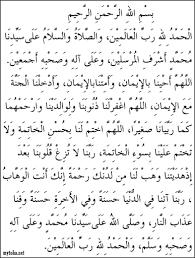 بِسْمِ اللهِ الرَّحْمٰنِ الرَّحِيْمِ
الْحَمْدُ لِلّٰهِ رَبِّ الْعَالَمِيْنَ، وَالصَّلَاةُ وَالسَّلَامُ عَلَى سَيِّدِنَا
مُحَمَّدٍ أَشْرَفِ الْمُرْسَلِيْنَ، وَعَلَى آلِهِ وَصَحْبِهِ أَجْمَعِيْنَ.
اللّٰهُمَّ أَحْيِنَا بِالْإِيْمَانِ، وَأَمِتْنَا بِالْإِيْمَانِ، وَأَدْخِلْنَا الْجَنَّةَ
مَعَ الْإِيْمَانِ، اللّٰهُمَّ اغْفِرْ لَنَا ذُنُوْبَنَا وَلِوَالِدِيْنَا وَارْحَمْهُمَا
كَمَا رَبَّيَانَا صَغِيْرًا، اللّٰهُمَّ اخْتِمْ لَنَا بِحُسْنِ الْخَاتِمَةِ وَلَا
تَخْتِمْ عَلَيْنَا بِسُوْءِ الْخَاتِمَةِ، رَبَّنَا لَا تُزِغْ قُلُوْبَنَا بَعْدَ
إِذْ هَدَيْتَنَا وَهَبْ لَنَا مِنْ لَدُنْكَ رَحْمَةً إِنَّكَ أَنْتَ الْوَهَّابُ
، رَبَّنَا آتِنَا فِي الدُّنْيَا حَسَنَةً وَفِي الْآخِرَةِ حَسَنَةً وَقِنَا
عَذَابَ النَّارِ، وَصَلَّى اللهُ عَلَى سَيِّدِنَا مُحَمَّدٍ وَعَلَى آلِهِ
وَصَحْبِهِ وَسَلَّمَ، وَالْحَمْدُ لِلّٰهِ رَبِّ الْعَالَمِيْنَ.